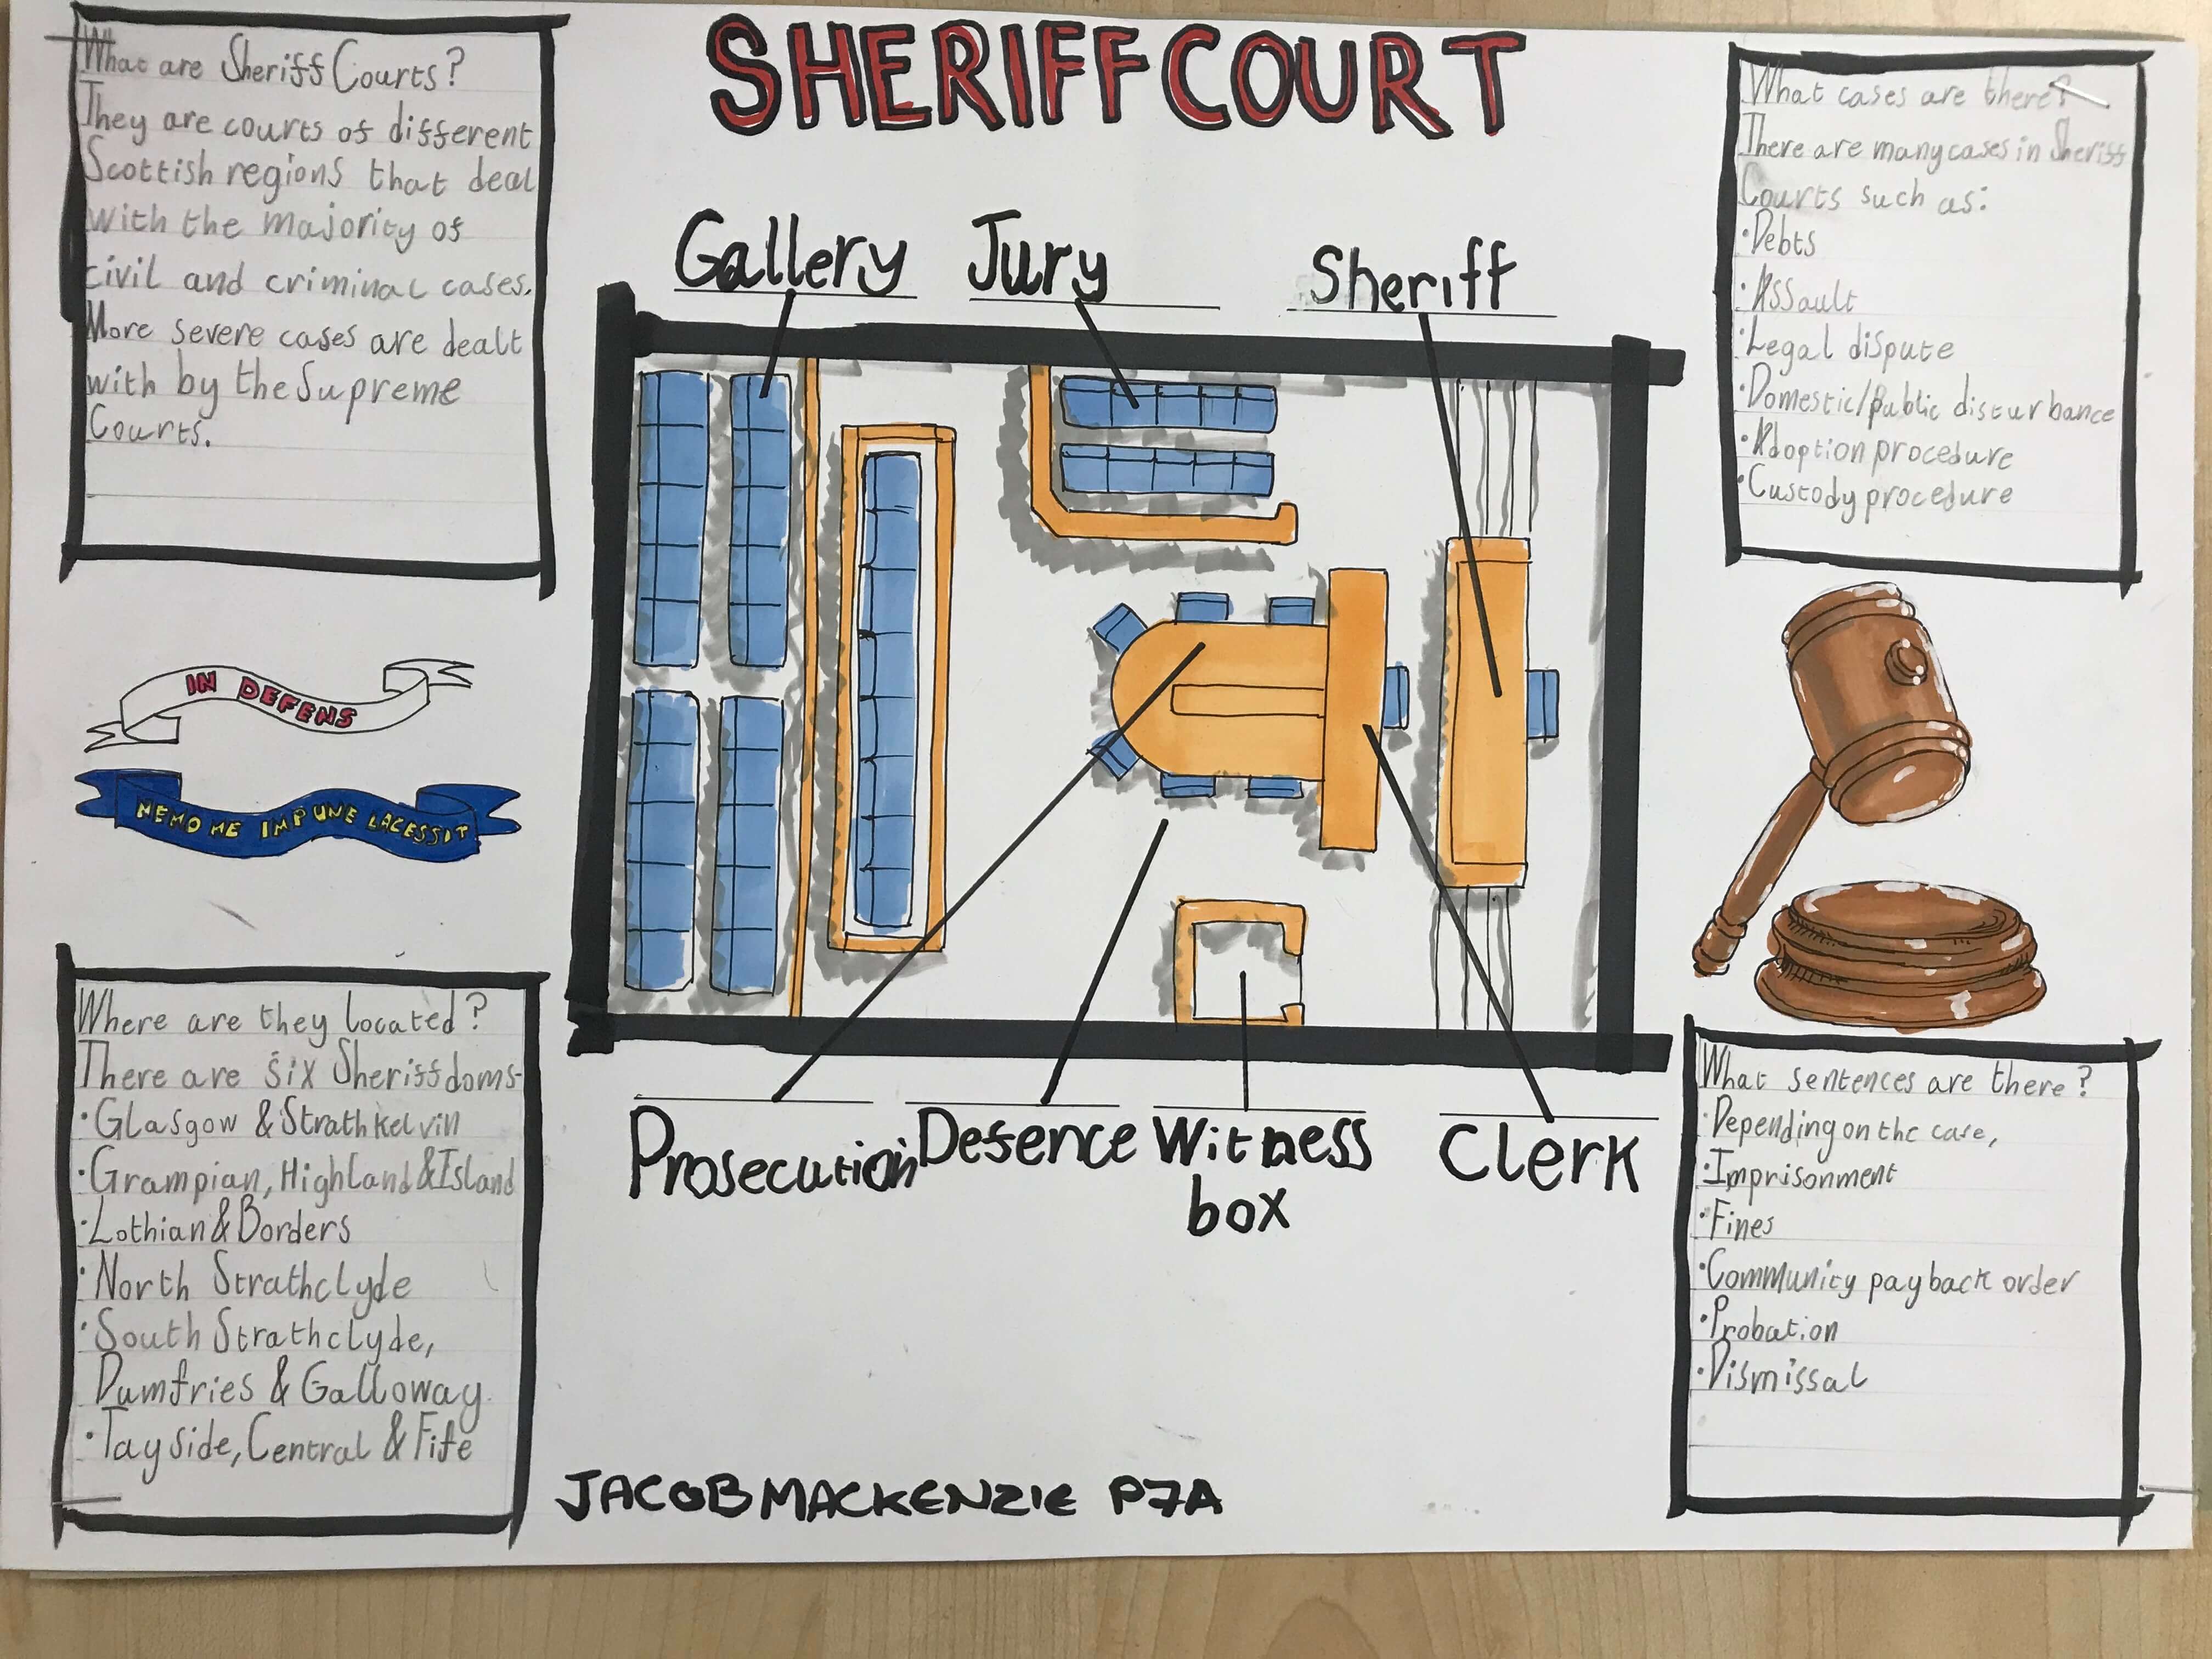 SHERIFF COURT
What are Sheriff Courts?
They are courts of different
Scottish regions that deal
with the majority of
civil and criminal cases.
More severe cases are dealt
with by the Supreme
Courts.
IN DEFENS
NEMO ME IMPUNE LACESSIT
Where are they located?
There are six Sheriffdoms-
·Glasgow & Strathkelvin
·Grampian, Highland & Island
·Lothian & Borders
·North Strathclyde
·South Strathclyde,
Dumfries & Galloway.
·Tayside, Central & Fife
Gallery
Jury
Sheriff
Prosecution
Defence
Witness
box
Clerk
JACOB MACKENZIE P7A
What cases are there?
There are many cases in Sheriff
Courts such as:
·Debts
·Assault
·Legal dispute
·Domestic/public disturbance
·Adoption procedure
·Custody procedure
What sentences are there?
·Depending on the case,
·Imprisonment
·Fines
·Community payback order
·Probation
·Dismissal